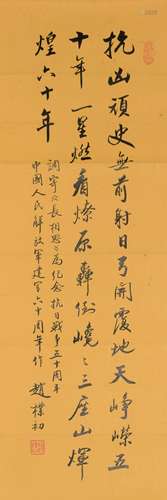 抗凶頑史無前射日弓開覆地天崢嶸五
十年一星燃看燎原轟倒嶢〻三座山輝
煌六十年
調寄長相思為紀念抗日戰爭五十周年
中國人民解放軍建軍六十周年作 趙樸初